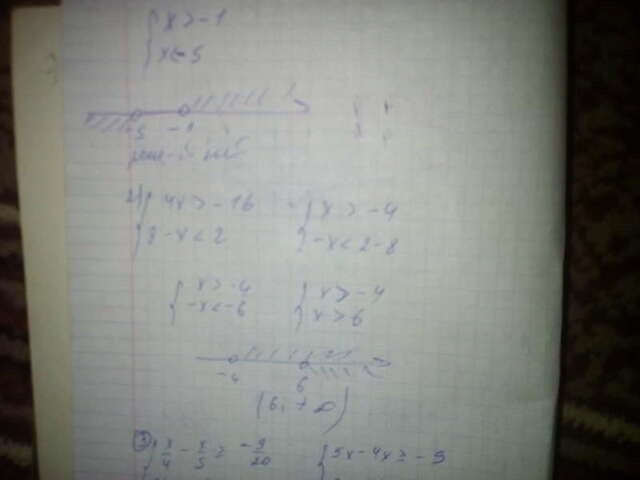 { x > -1
{ x < -5
-5 -1
2) { 4x > -16 { x > -4
{ 8 - x < 2 { -x < 2 - 8
{ x > -4 { x > -4
{ -x < -6 { x > 6
-4 6
(6; +∞)
③ { x/4 - x/5 ≥ -9/20 { 5x - 4x ≥ -9